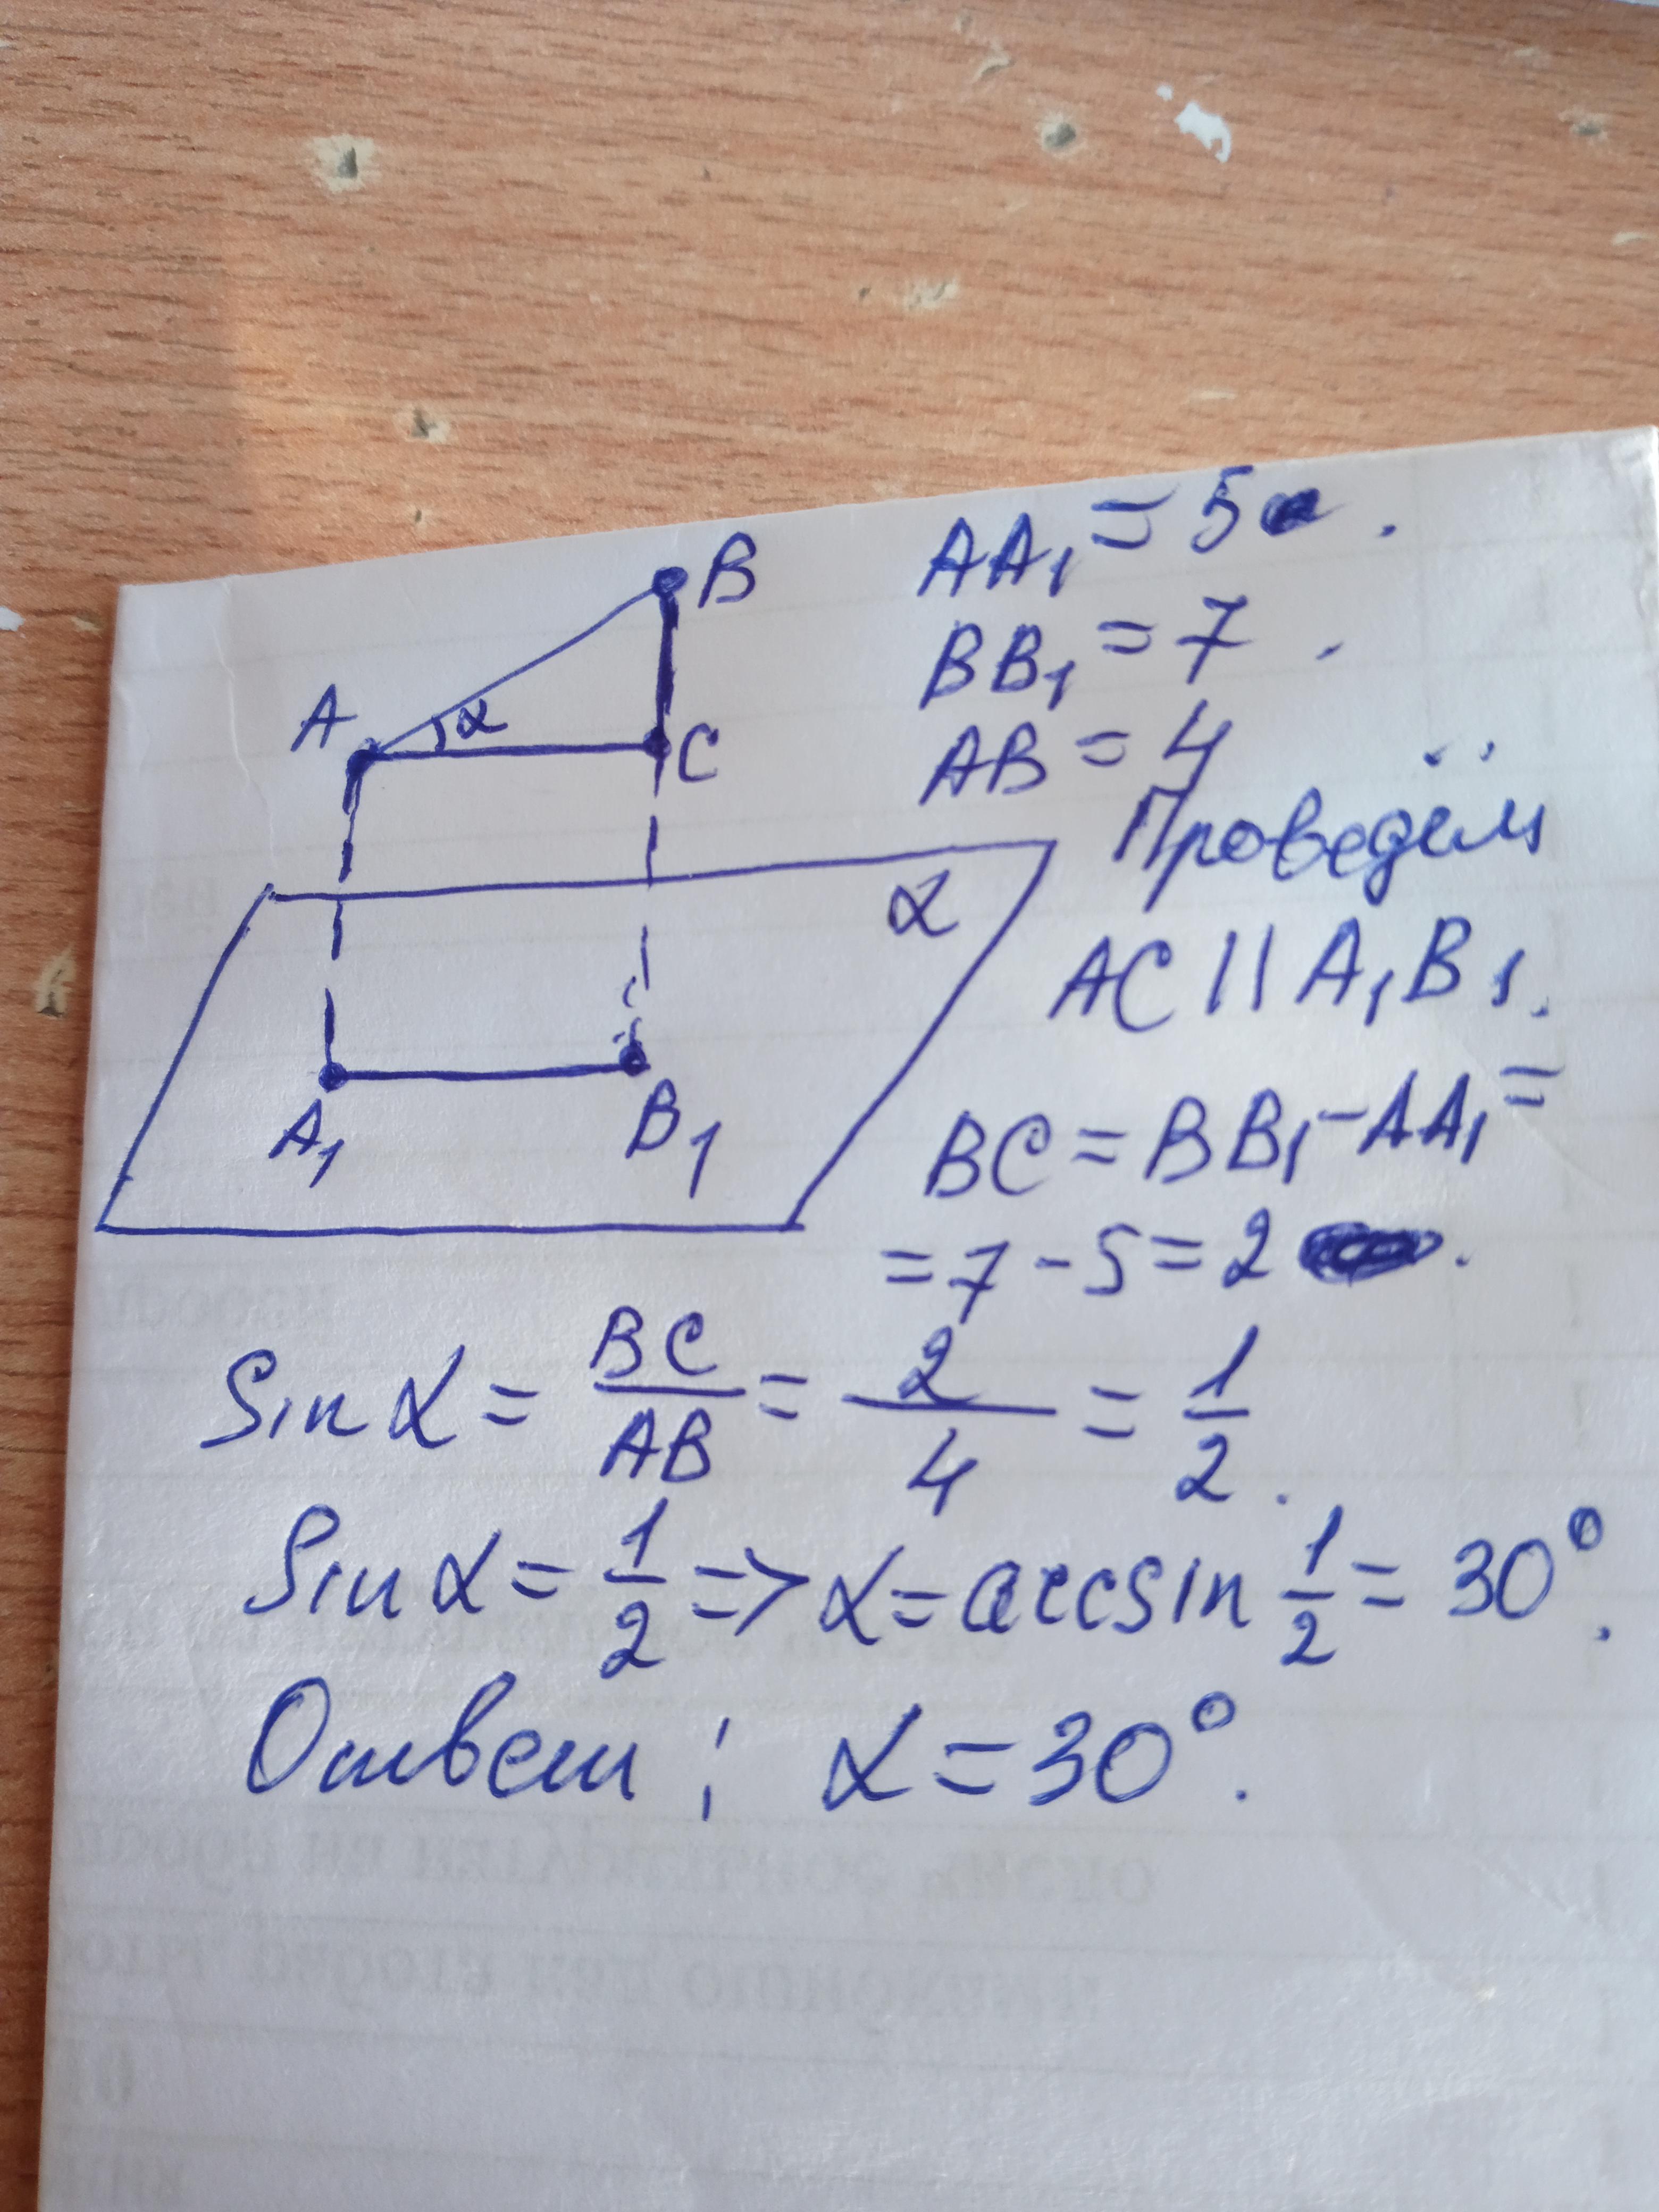 B
A
α
C
α
A₁
B₁
AA₁ = 5 .
BB₁ = 7 .
AB = 4
Проведём
AC || A₁B₁.
BC = BB₁ - AA₁ =
= 7 - 5 = 2 .
Sin α = BC/AB = 2/4 = 1/2 .
Sin α = 1/2 => α = arcsin 1/2 = 30°.
Ответ: α = 30°.